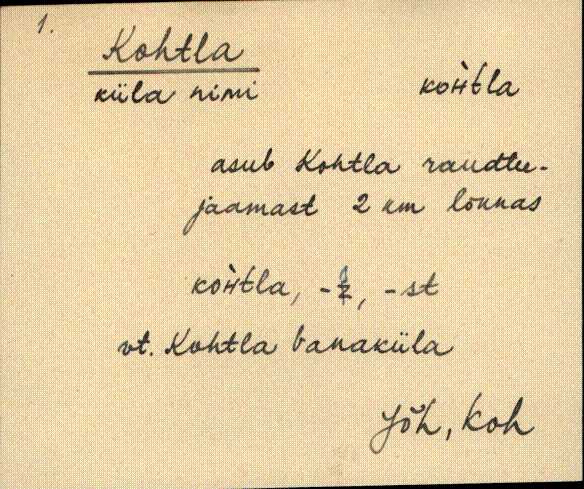 1.
Kohtla
küla nimi koh̀tla
asub Kohtla raudtee-
jaamast 2 km lõunas
koh̀tla, -, -st
vt. Kohtla vanaküla
Jõh, Koh